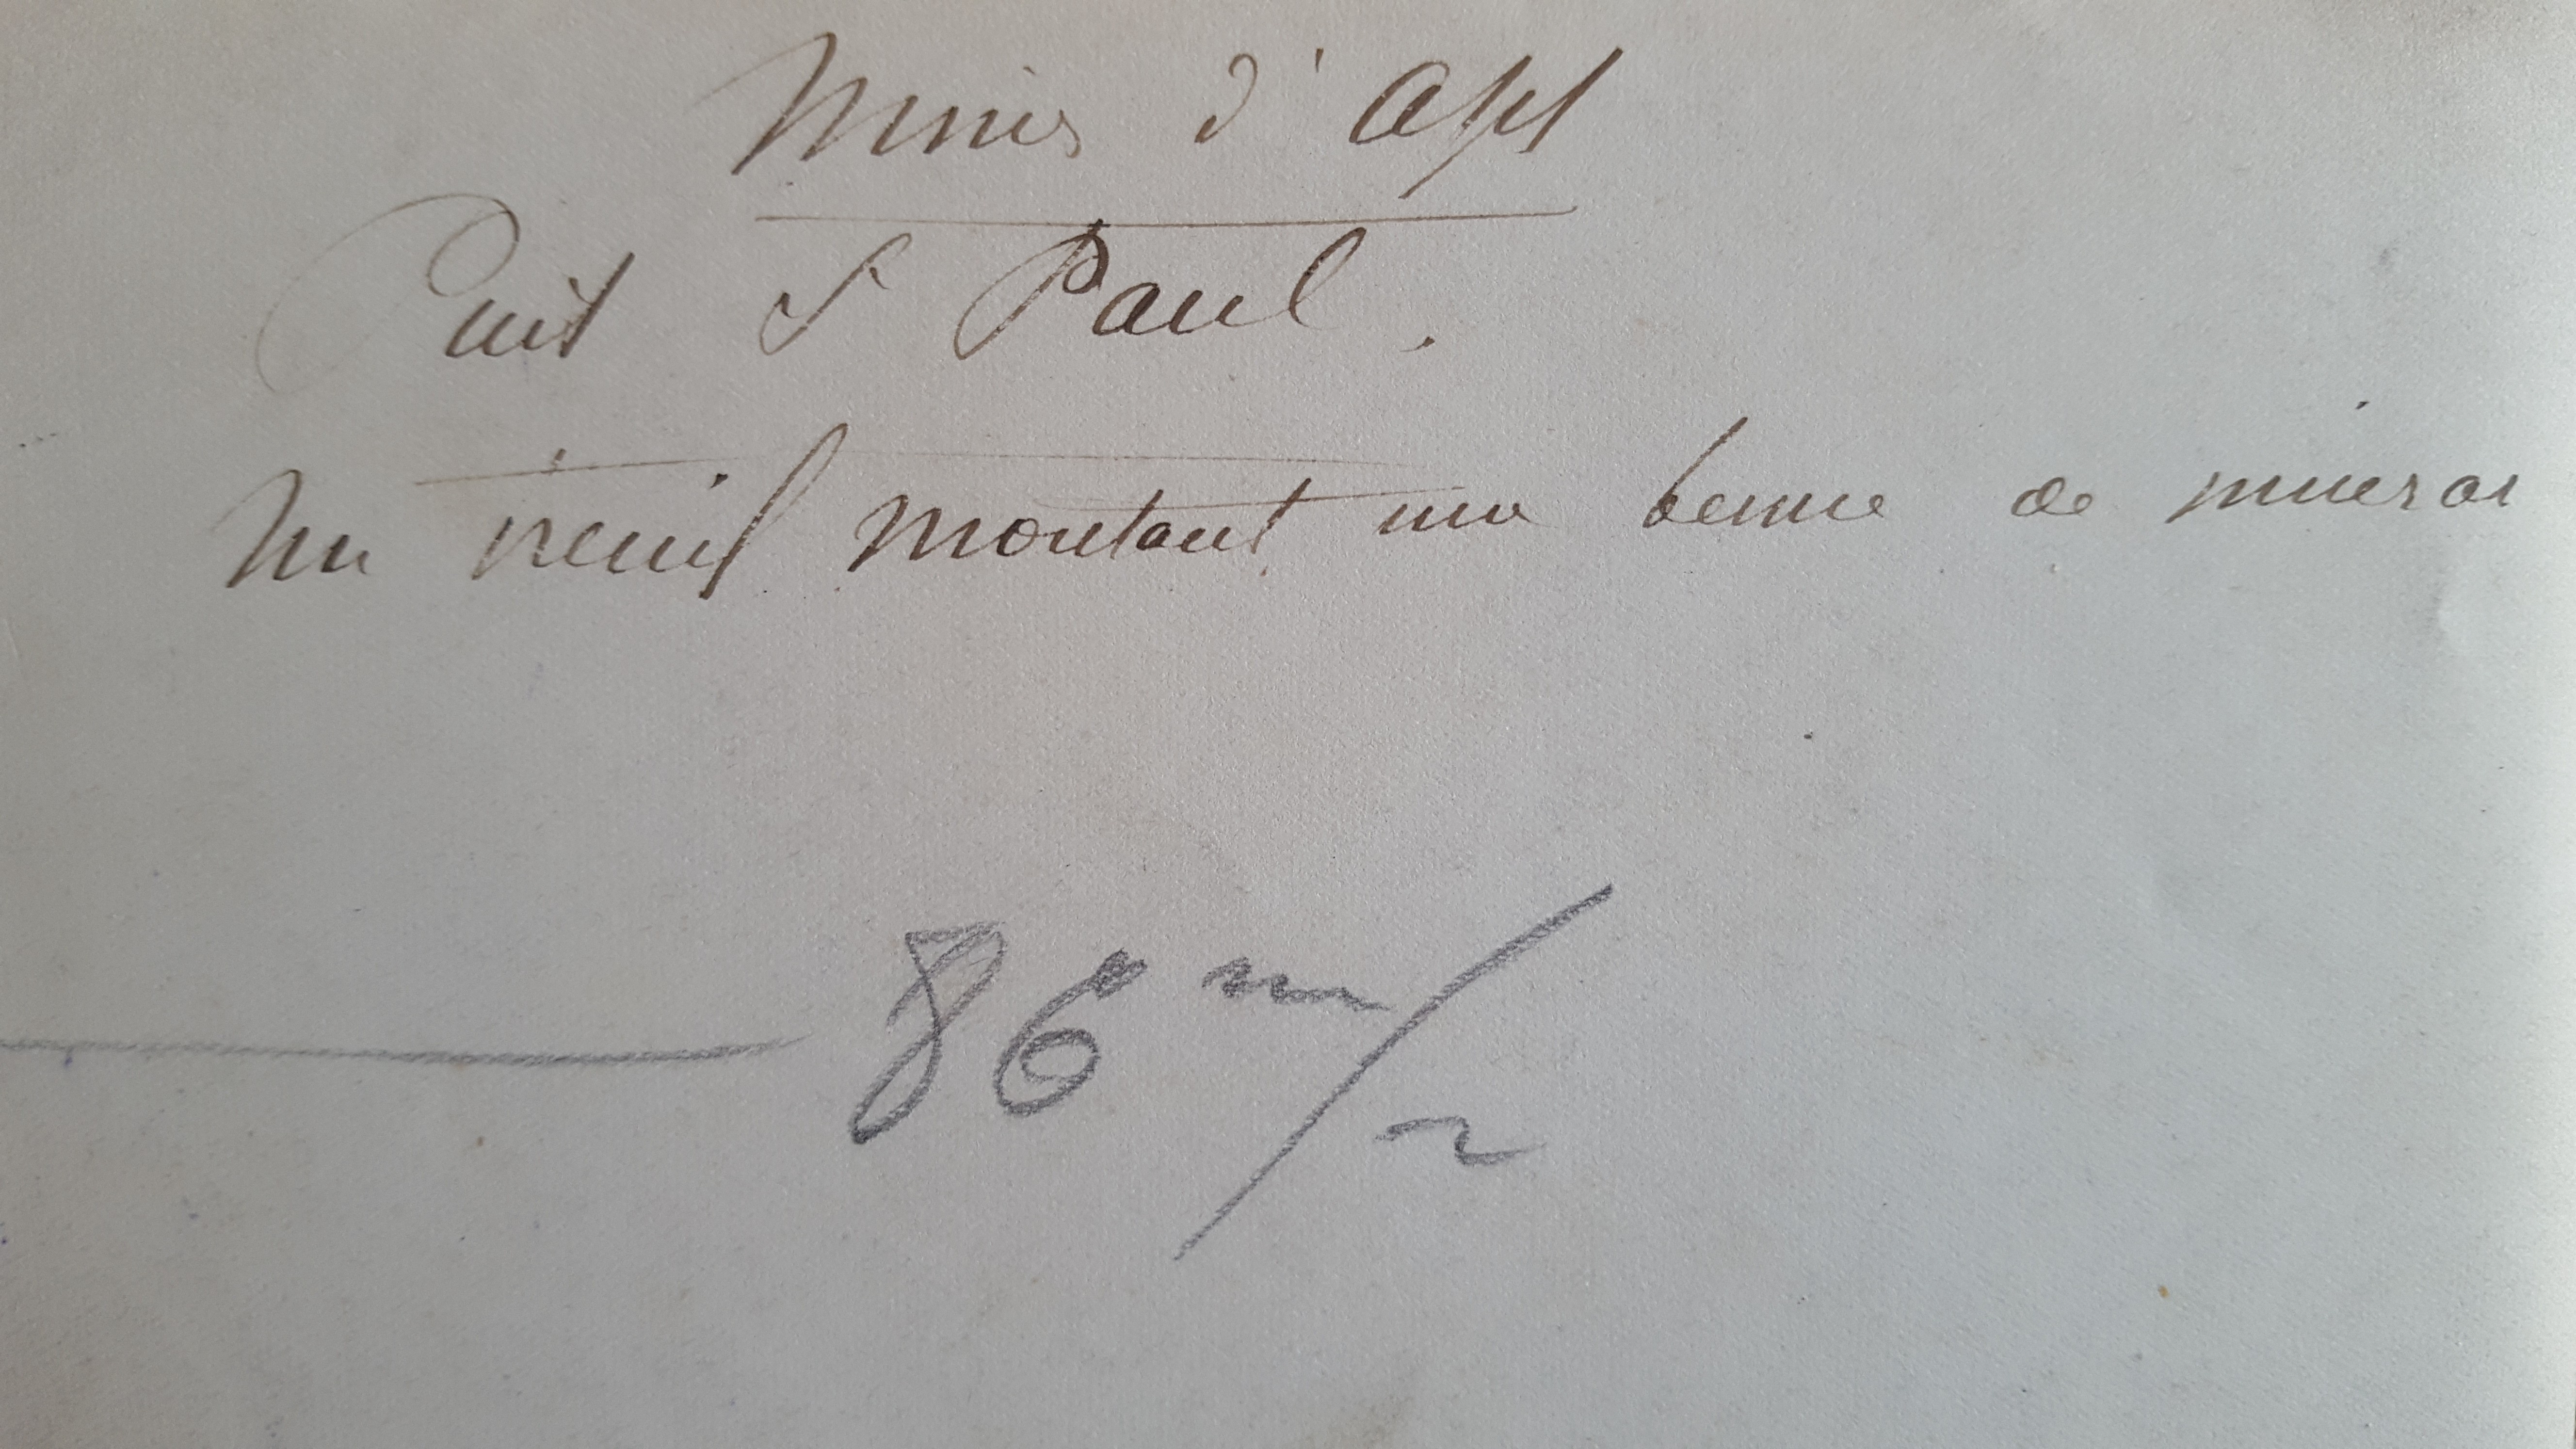 Mines d'Apt
Puit St Paul.
Un treuil montant une benne de minerai
86 m/m